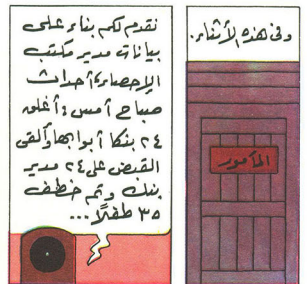 وفى هذه الأثناء.
المأمور
نقدم لكم بناء على
بيانات مدير مكتب
الإحصاء، أحداث
صباح أمس: أغلق
٢٤ بنكا أبوابها وألقى
القبض على ٢٤ مدير
بنك وتم خطف
٣٥ طفلًا...